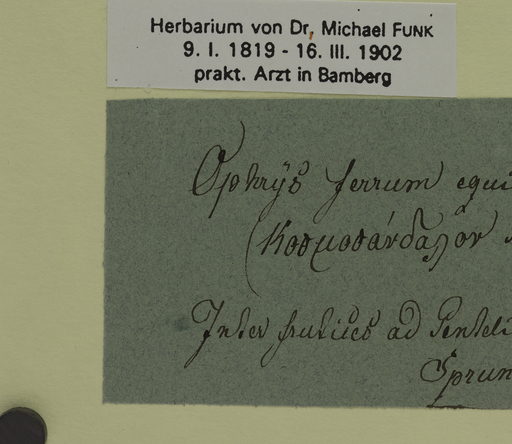 Herbarium von Dr. Michael FUNK
9. I. 1819 - 16. III. 1902
prakt. Arzt in Bamberg
Ophrys ferrum equi
(Κοσμοσάνδαλον
Inter frutices ad Penteli
Sprun